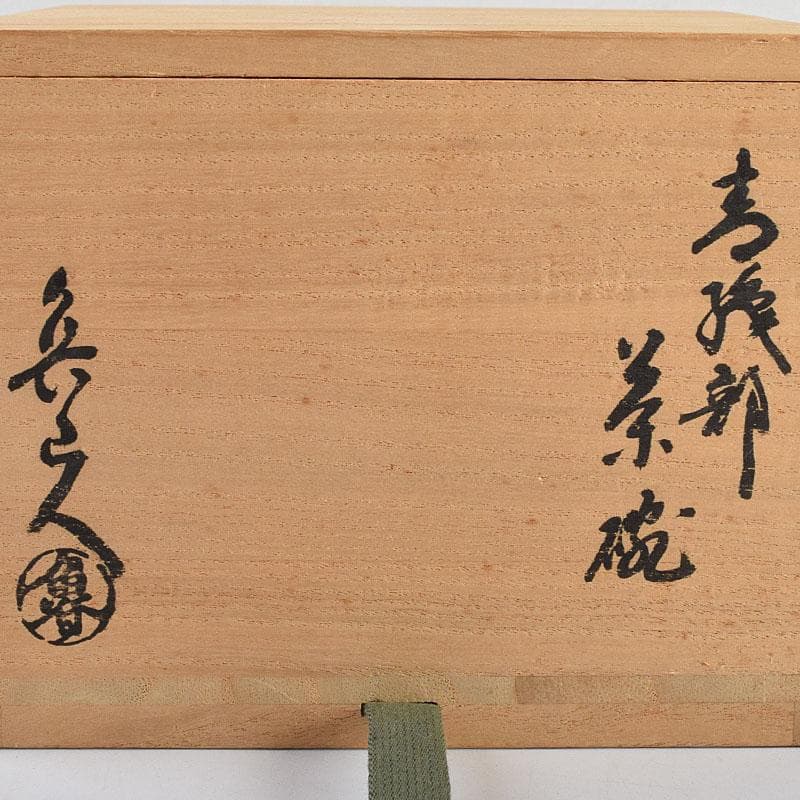 青織部
茶碗
魯山人
魯